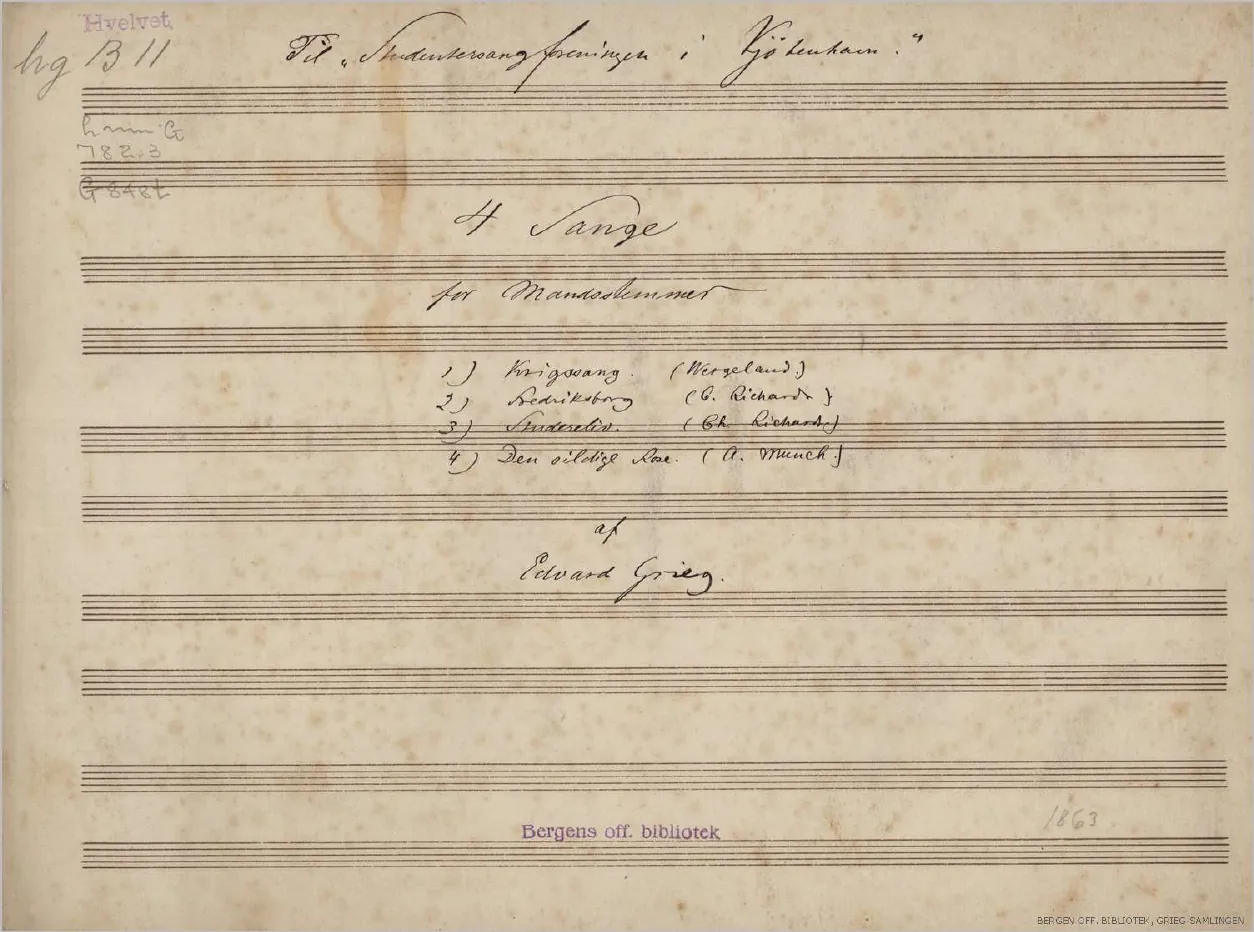 Hvelvet
hg B 11
Til „Studentersangforeningen i Kjöbenhavn."
782.3
G 848t
4 Sange
for Mandsstemmer
1) Krigssang. (Wergeland.)
2) Fredriksborg (C. Richardt)
3) Studereliv. (Ch. Richardt.)
4) Den sildige Rose. (A. Munch.)
af
Edvard Grieg.
1863
Bergens off. bibliotek
BERGEN OFF. BIBLIOTEK, GRIEG SAMLINGEN